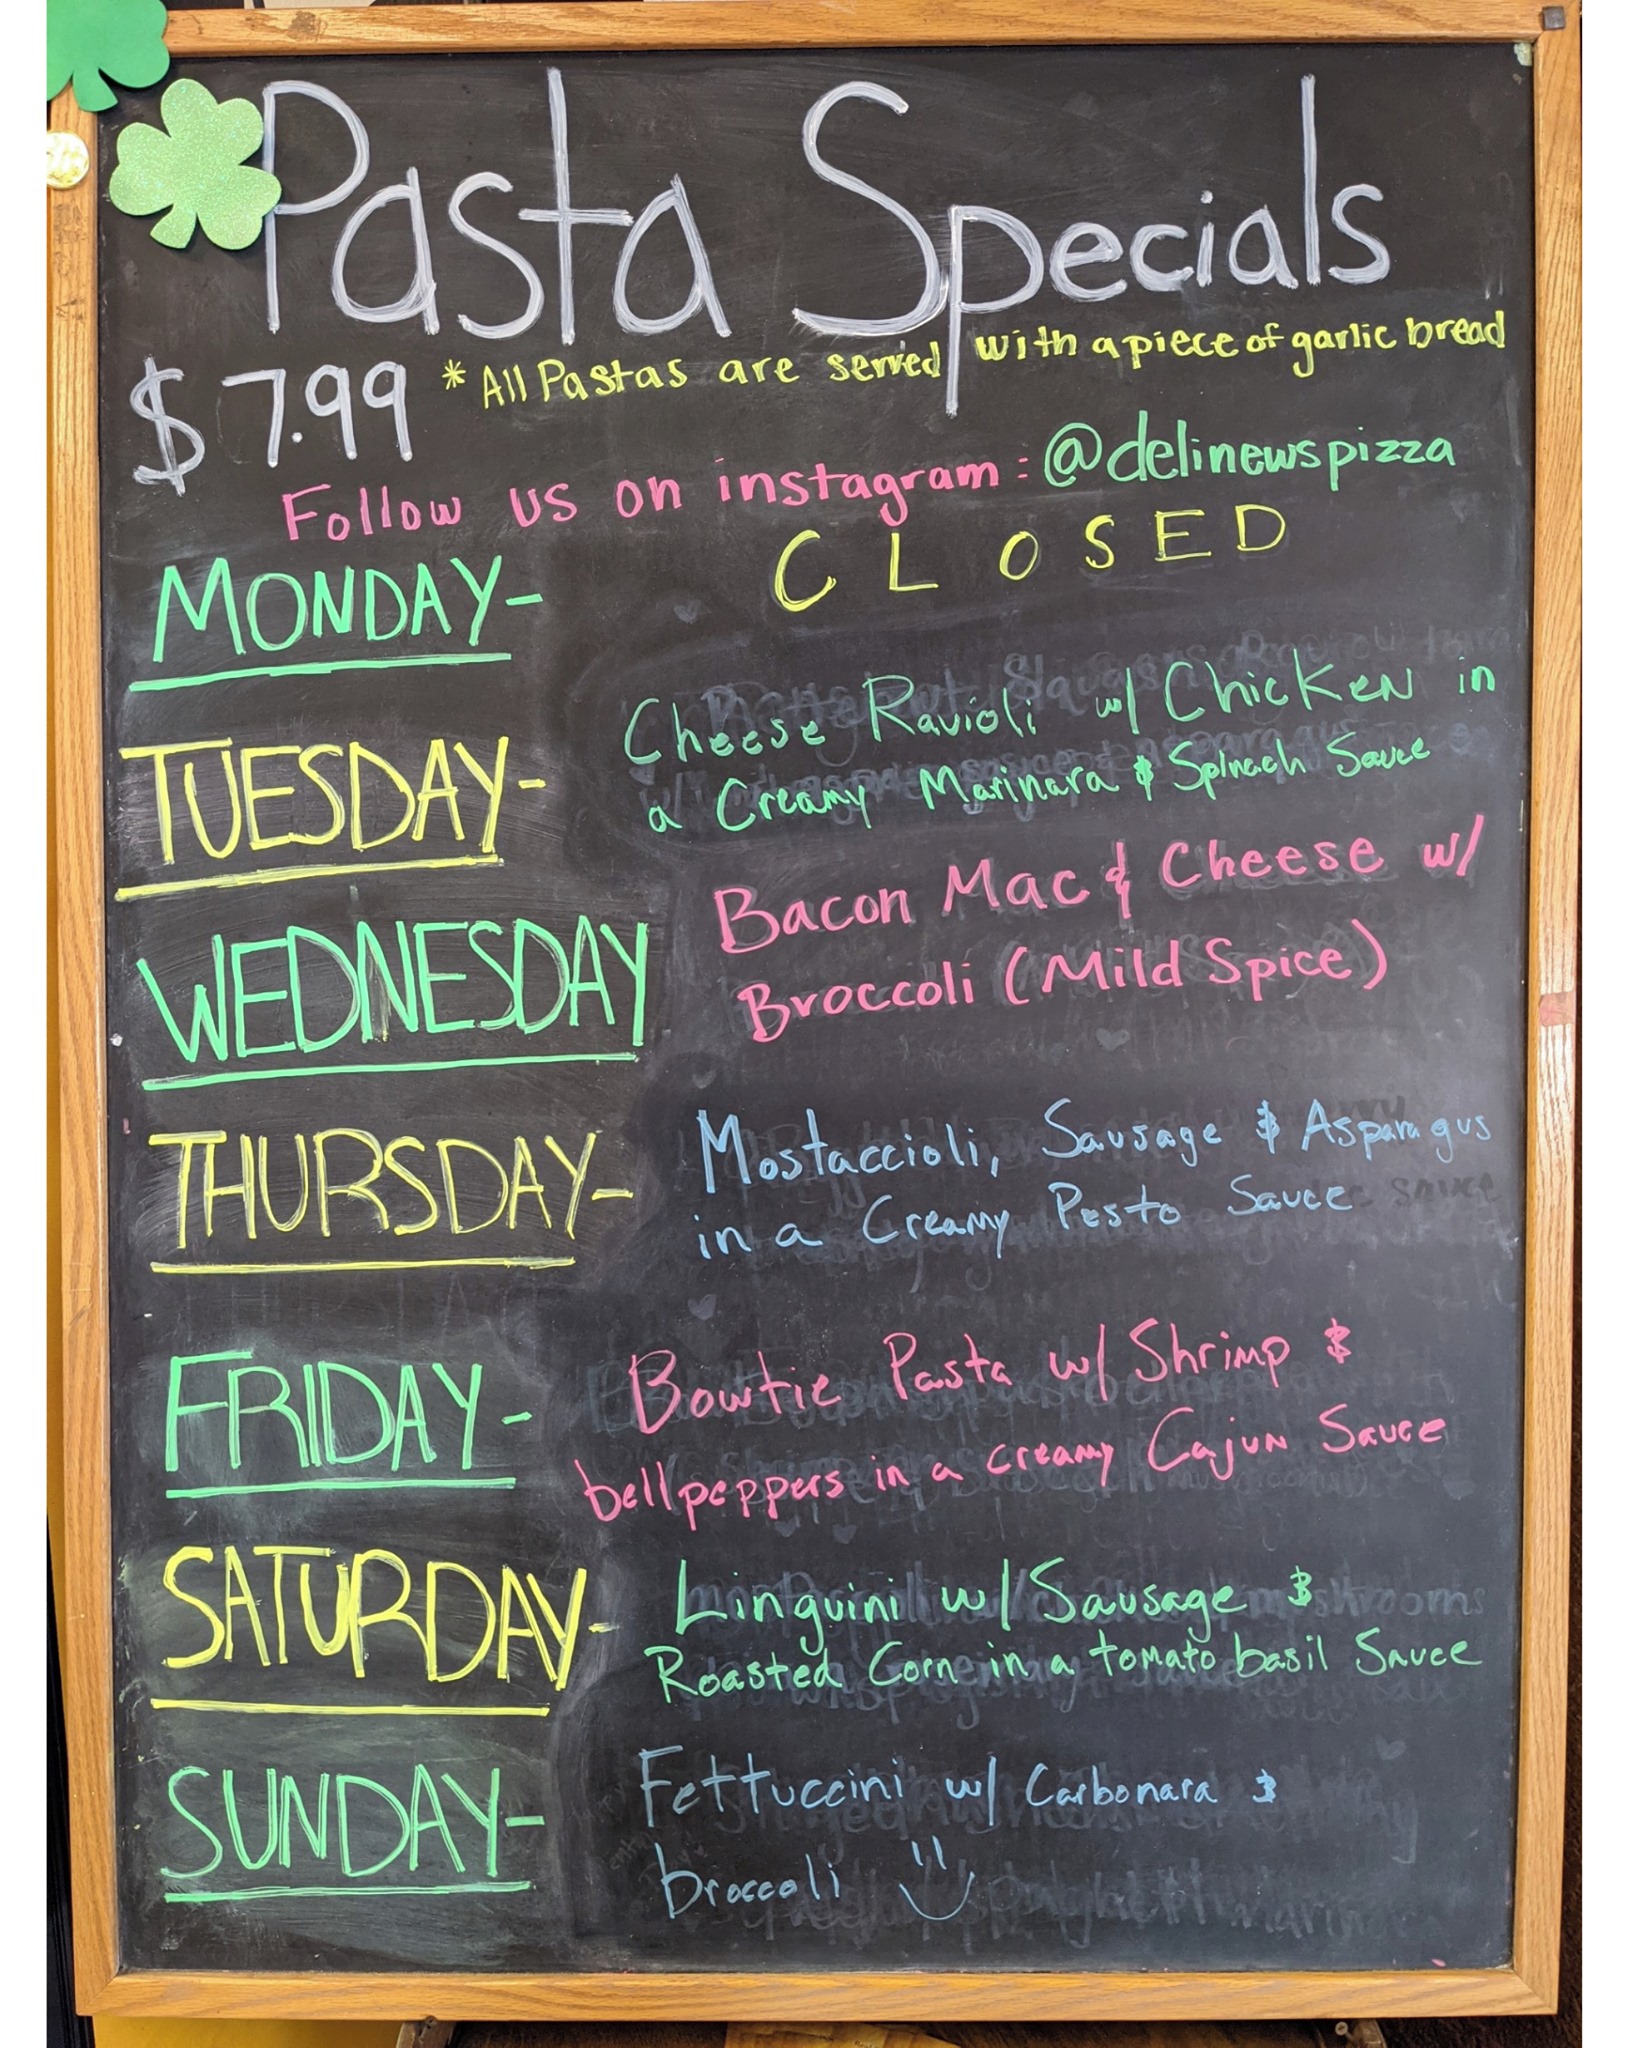 Pasta Specials
$7.99 *All Pastas are served with a piece of garlic bread
Follow us on instagram: @delinewspizza
MONDAY- CLOSED
TUESDAY- Cheese Ravioli w/ Chicken in
a Creamy Marinara & Spinach Sauce
WEDNESDAY Bacon Mac & Cheese w/
Broccoli (Mild Spice)
THURSDAY- Mostaccioli, Sausage & Asparagus
in a Creamy Pesto Sauce
FRIDAY- Bowtie Pasta w/ Shrimp &
bellpeppers in a creamy Cajun Sauce
SATURDAY- Linguini w/ Sausage &
Roasted Corn in a tomato basil Sauce
SUNDAY- Fettuccini w/ Carbonara &
broccoli